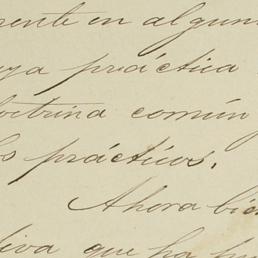 rente en algun
ya práctica
doctrina común
los prácticos.
Ahora bien
tiva que ha